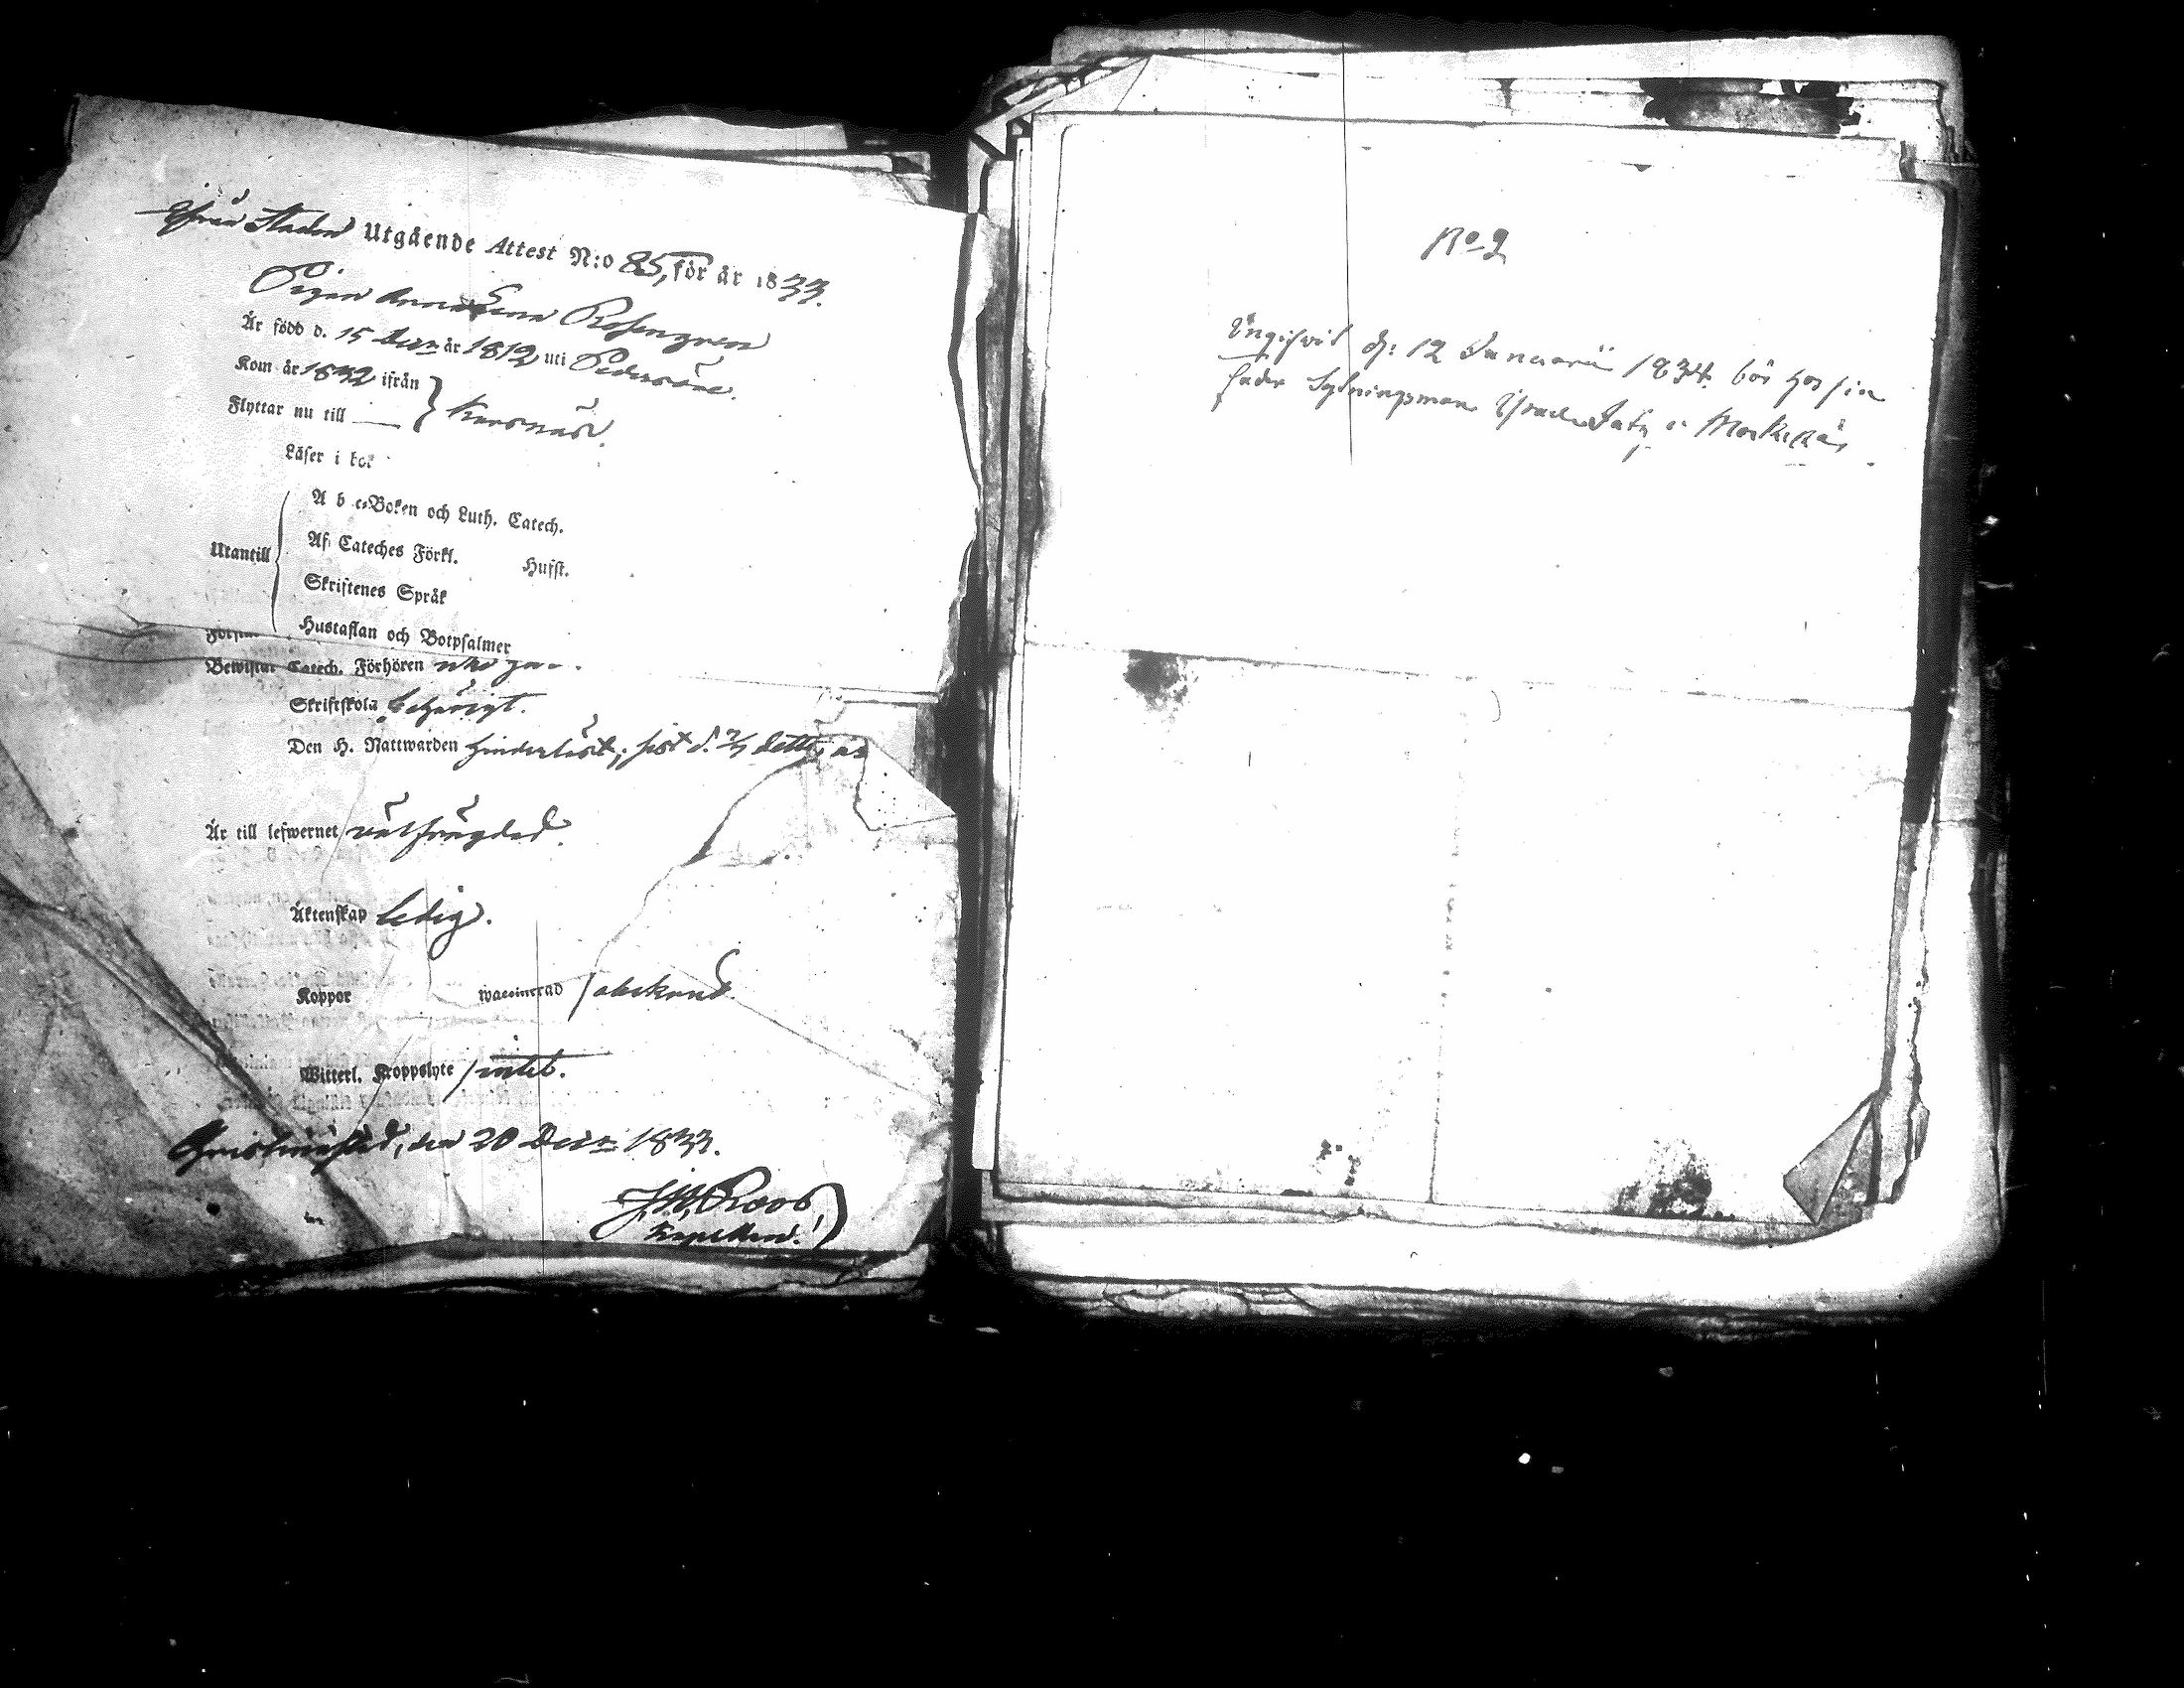 Ifrån Staden Utgående Attest N:o 85, för år 1833.
Pigan Anna Lena Rosengren
Är född d. 15 Decm år 1812 uti Pedersöre.
Kom år 1832 ifrån
Flyttar nu till — } Korsnäs.
Läser i bok
A b c-Boken och Luth. Catech.
Utantill
Af Cateches Förkl. Husst.
Skriftenes Språk
Hustaflan och Botpsalmer
Bewistat Catech. Förhören
Skriftskola behörigt.
Den H. Nattwarden hinderlöst; sist d. detta år
Är till lefwernet wälfrägdad.
Äktenskap ledig.
Koppor waccinerad /obekant.
Witterl. Kroppslyte /intet.
Christinæstad, den 20 Decm 1833.
Kapellan.
No 2
Ingifwit d: 12 Januarii 1834. bör hos sin
fader Sytningsman Israel i